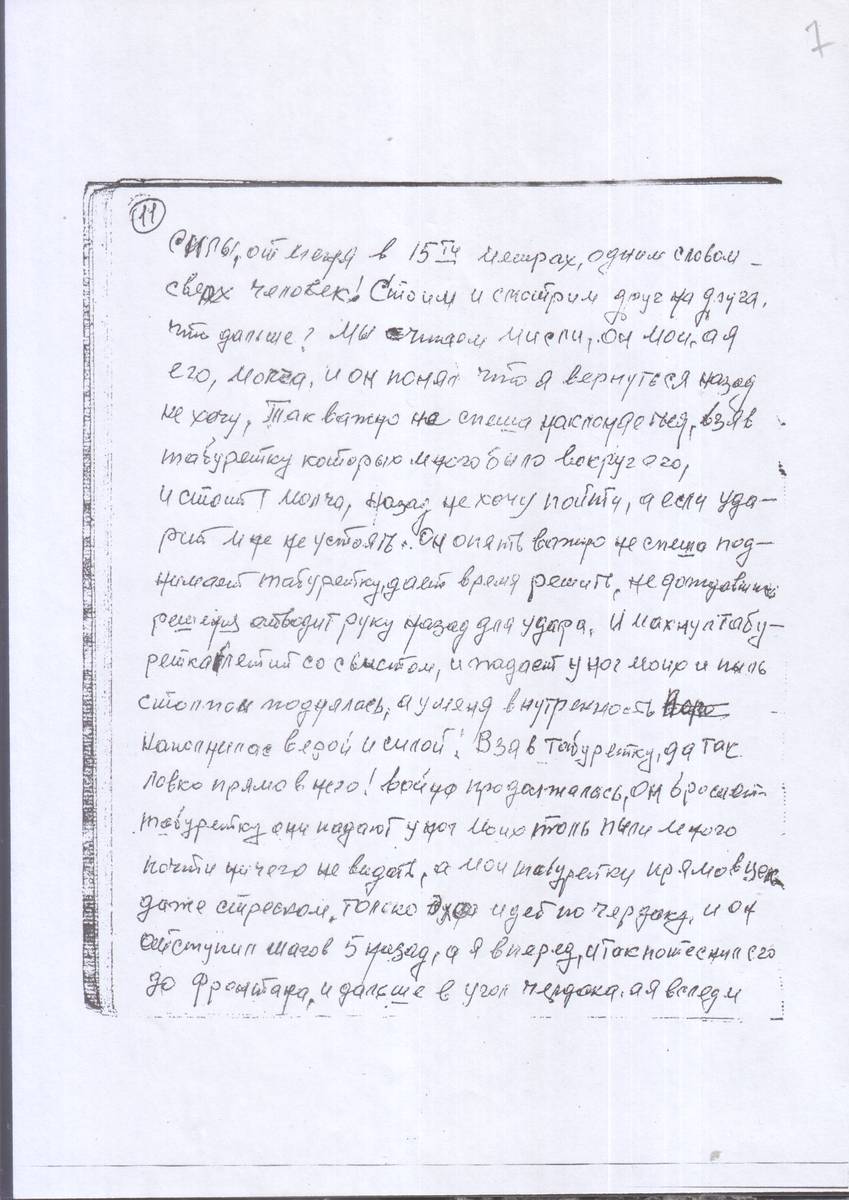 7
11
силы, от меня в 15ти метрах, одним словом –
сверх человек! Стоим и смотрим друг на друга.
что дальше? Мы читаем мисли, он мои, а я
его, молча, и он понял что я вернуться назад
не хочу, Так важно не спеша наклоняеться, взяв
табуретку которых много было вокруг его,
и стоит молча, назад не хочу пойти, а если уда–
рит мне не устоять. Он опять важно не спеша под–
нимает табуретку, дает время решить, не дождавшись
решения отводит руку назад для удара. И махнул табу–
ретка летит со свистом, и падает у ног моих и пыль
столпом поднялась, а у меня внутренность
наполнилас верой и силой! Взяв табуретку, да так
ловко прямо в него! война продолжалась, он бросает
табуретку они падают у ног моих толь пыли много
почти ничего не видать, а мои табуретки прямо в цел
даже стреском, только идеб по чердаку, и он
отступил шагов 5 назад, а я вперед, и так потеснил его
до фронтана, и дальше в угол чердака. а я вследи